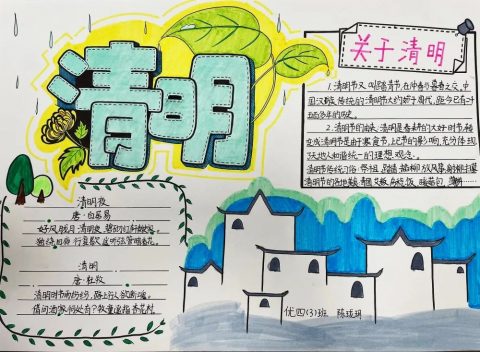 清明
关于清明
1.清明节又叫踏青节,在仲春与暮春之交,中
国汉族传统的清明节大约始于周代,距今已有二千
五百多年的历史。
2.清明节的由来,清明是春耕的大好时节,
变成清明节是由于寒食节,上巳节的影响,充分体现
天地人和谐统一的理想观念。
清明节传统习俗:祭祖,踏青,插柳,放风筝,
清明节的 青团,艾粄,乌稔饭,暖菇包,
清明夜
唐·白居易
好风胧月清明夜,碧砌红轩刺史家。
独绕回廊行复歇,遥听弦管暗看花。
清明
唐·杜牧
清明时节雨纷纷,路上行人欲断魂。
借问酒家何处有?牧童遥指杏花村
优四(3)班 陈珑玥